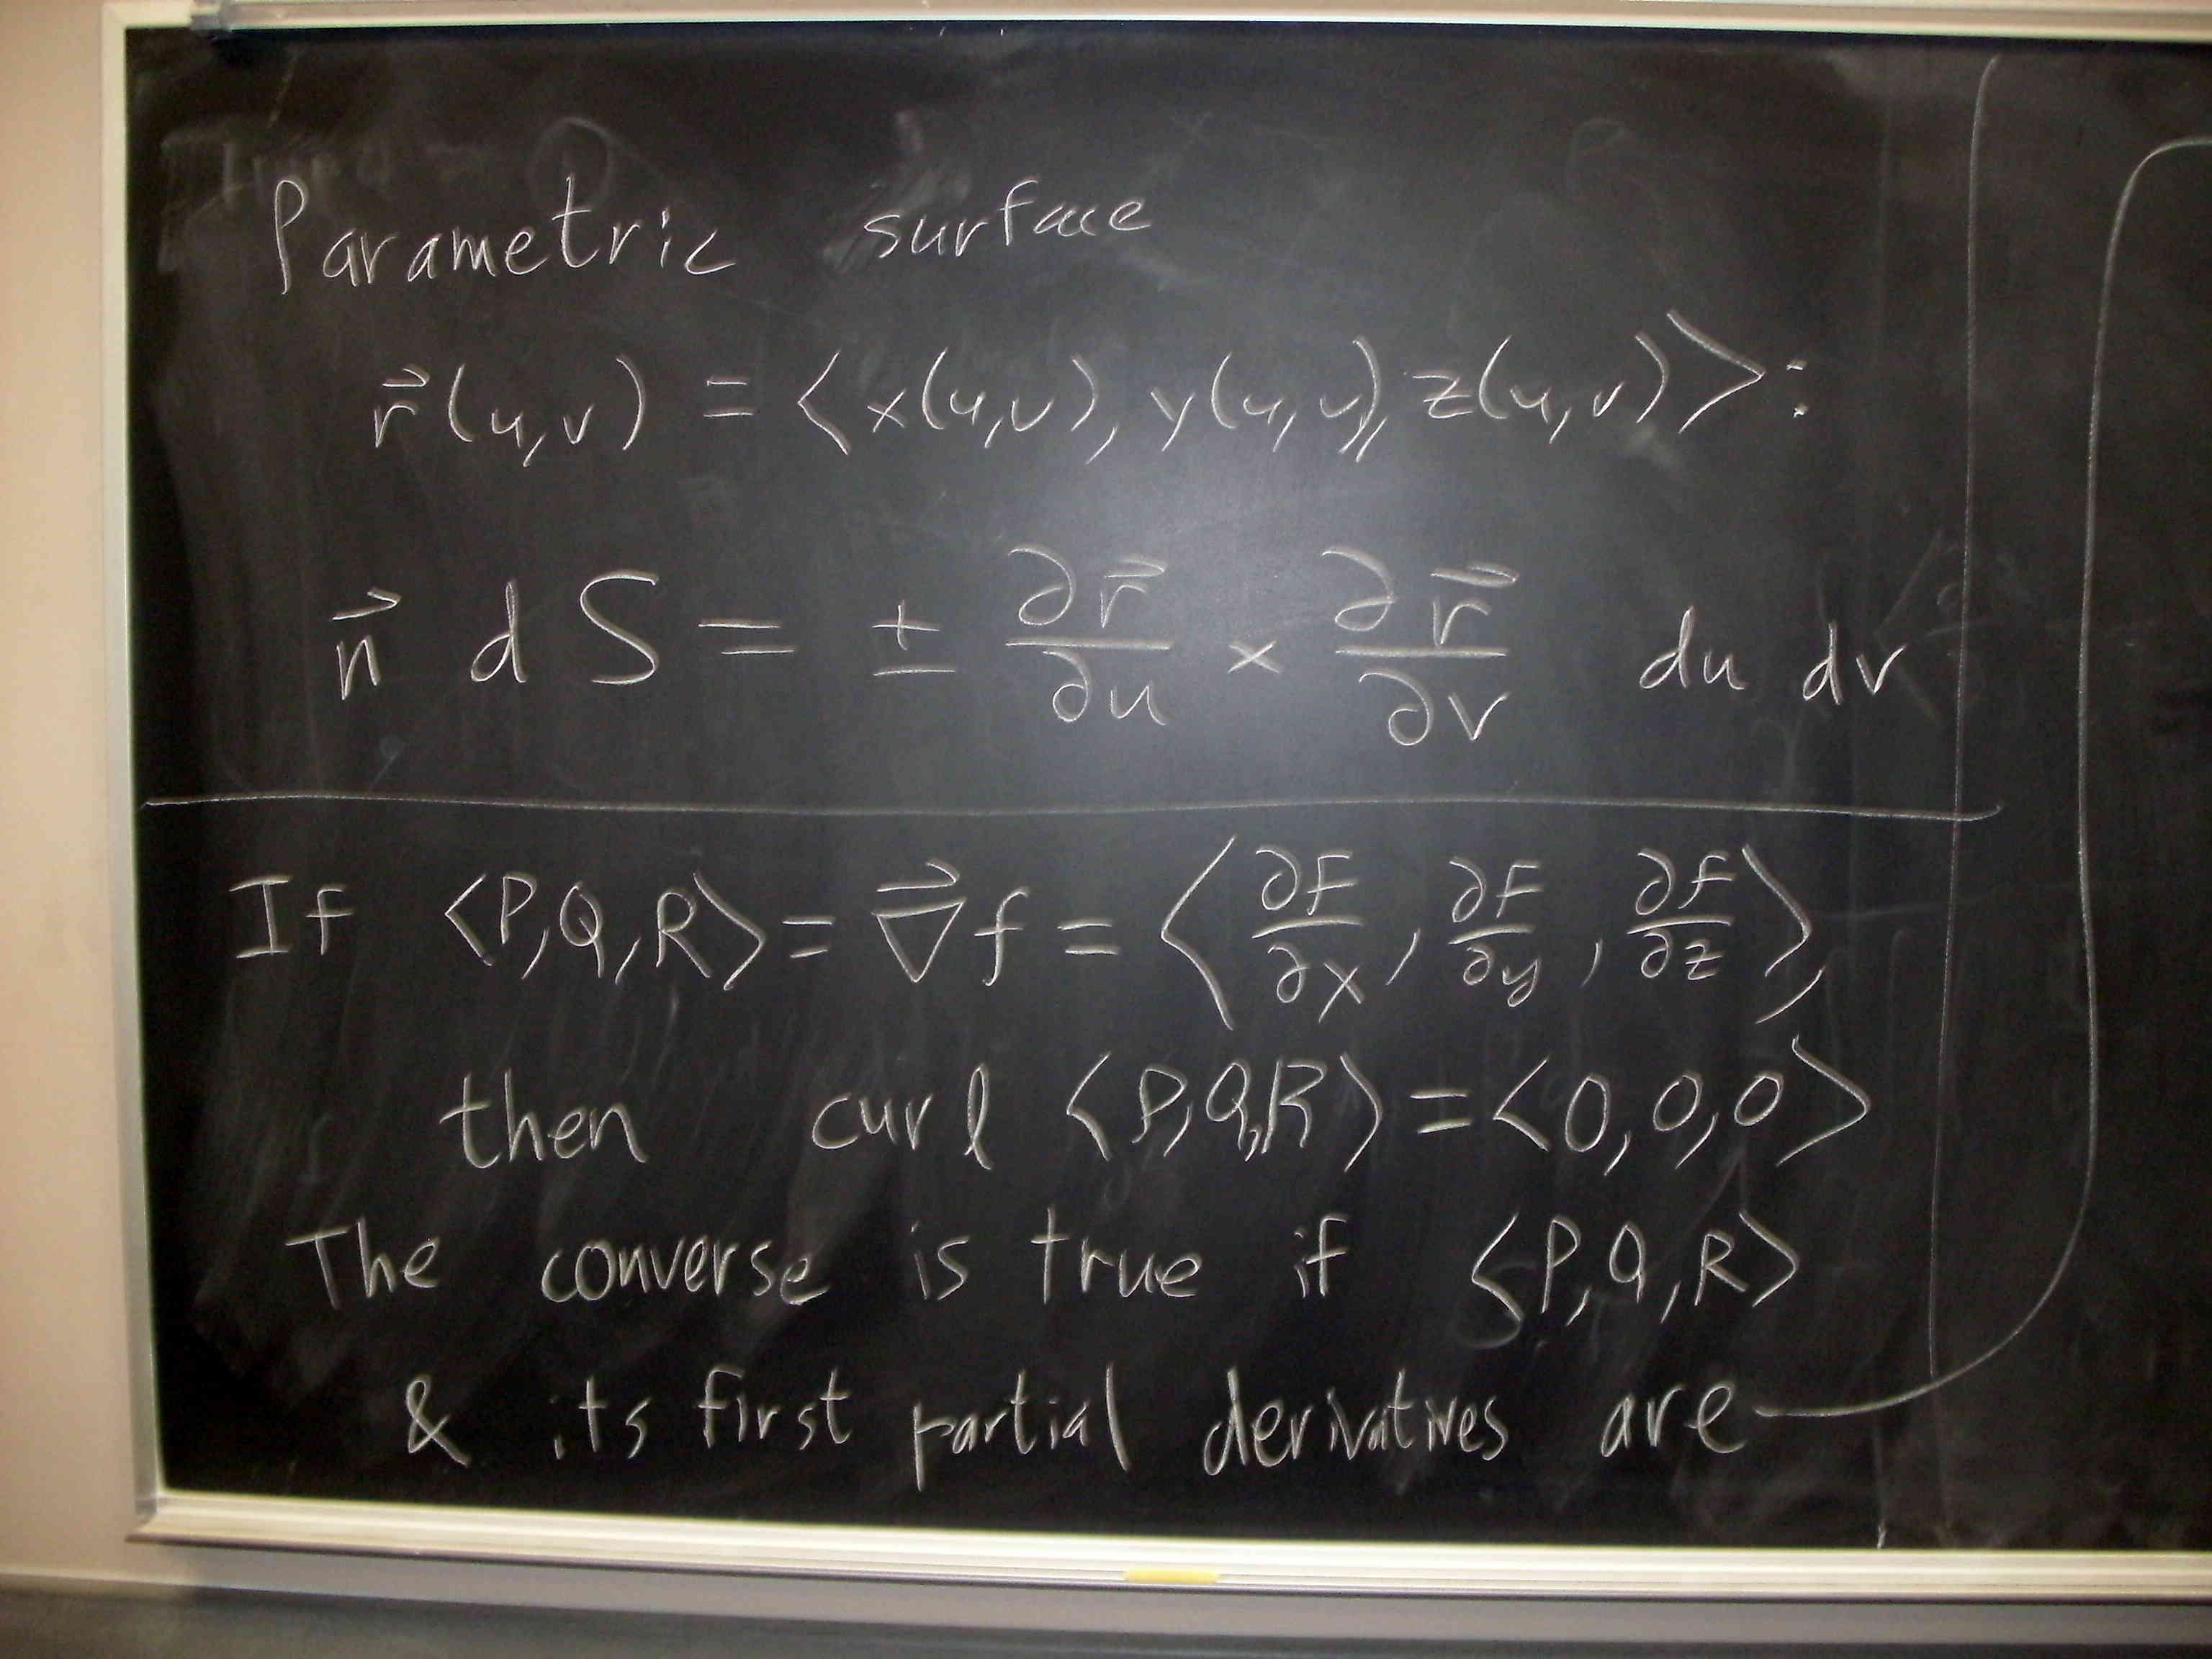 Parametric surface
r⃗(u,v) = ⟨x(u,v), y(u,v), z(u,v)⟩:
n⃗ dS = ± ∂r⃗/∂u × ∂r⃗/∂v du dv
If ⟨P,Q,R⟩ = ∇⃗f = ⟨∂f/∂x, ∂f/∂y, ∂f/∂z⟩,
then curl ⟨P,Q,R⟩ = ⟨0,0,0⟩
The converse is true if ⟨P,Q,R⟩
& its first partial derivatives are